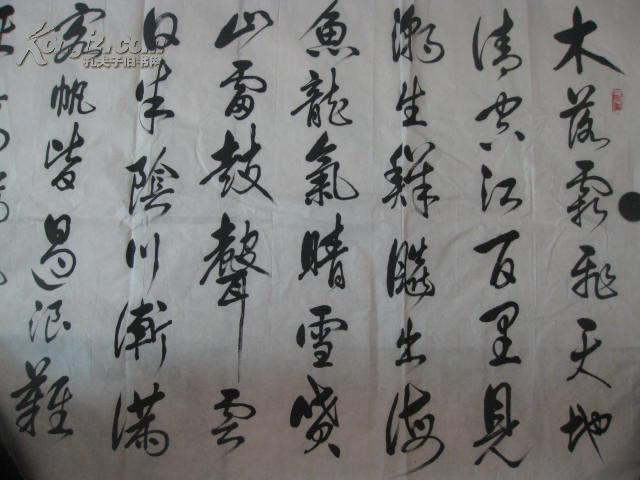 木落霜飛天地
清空江百里見
潮生鮮飈出海
魚龍氣晴雪噴
山雷鼓聲雲
日半陰川漸滿
客帆皆過浪難
孔夫子旧书网